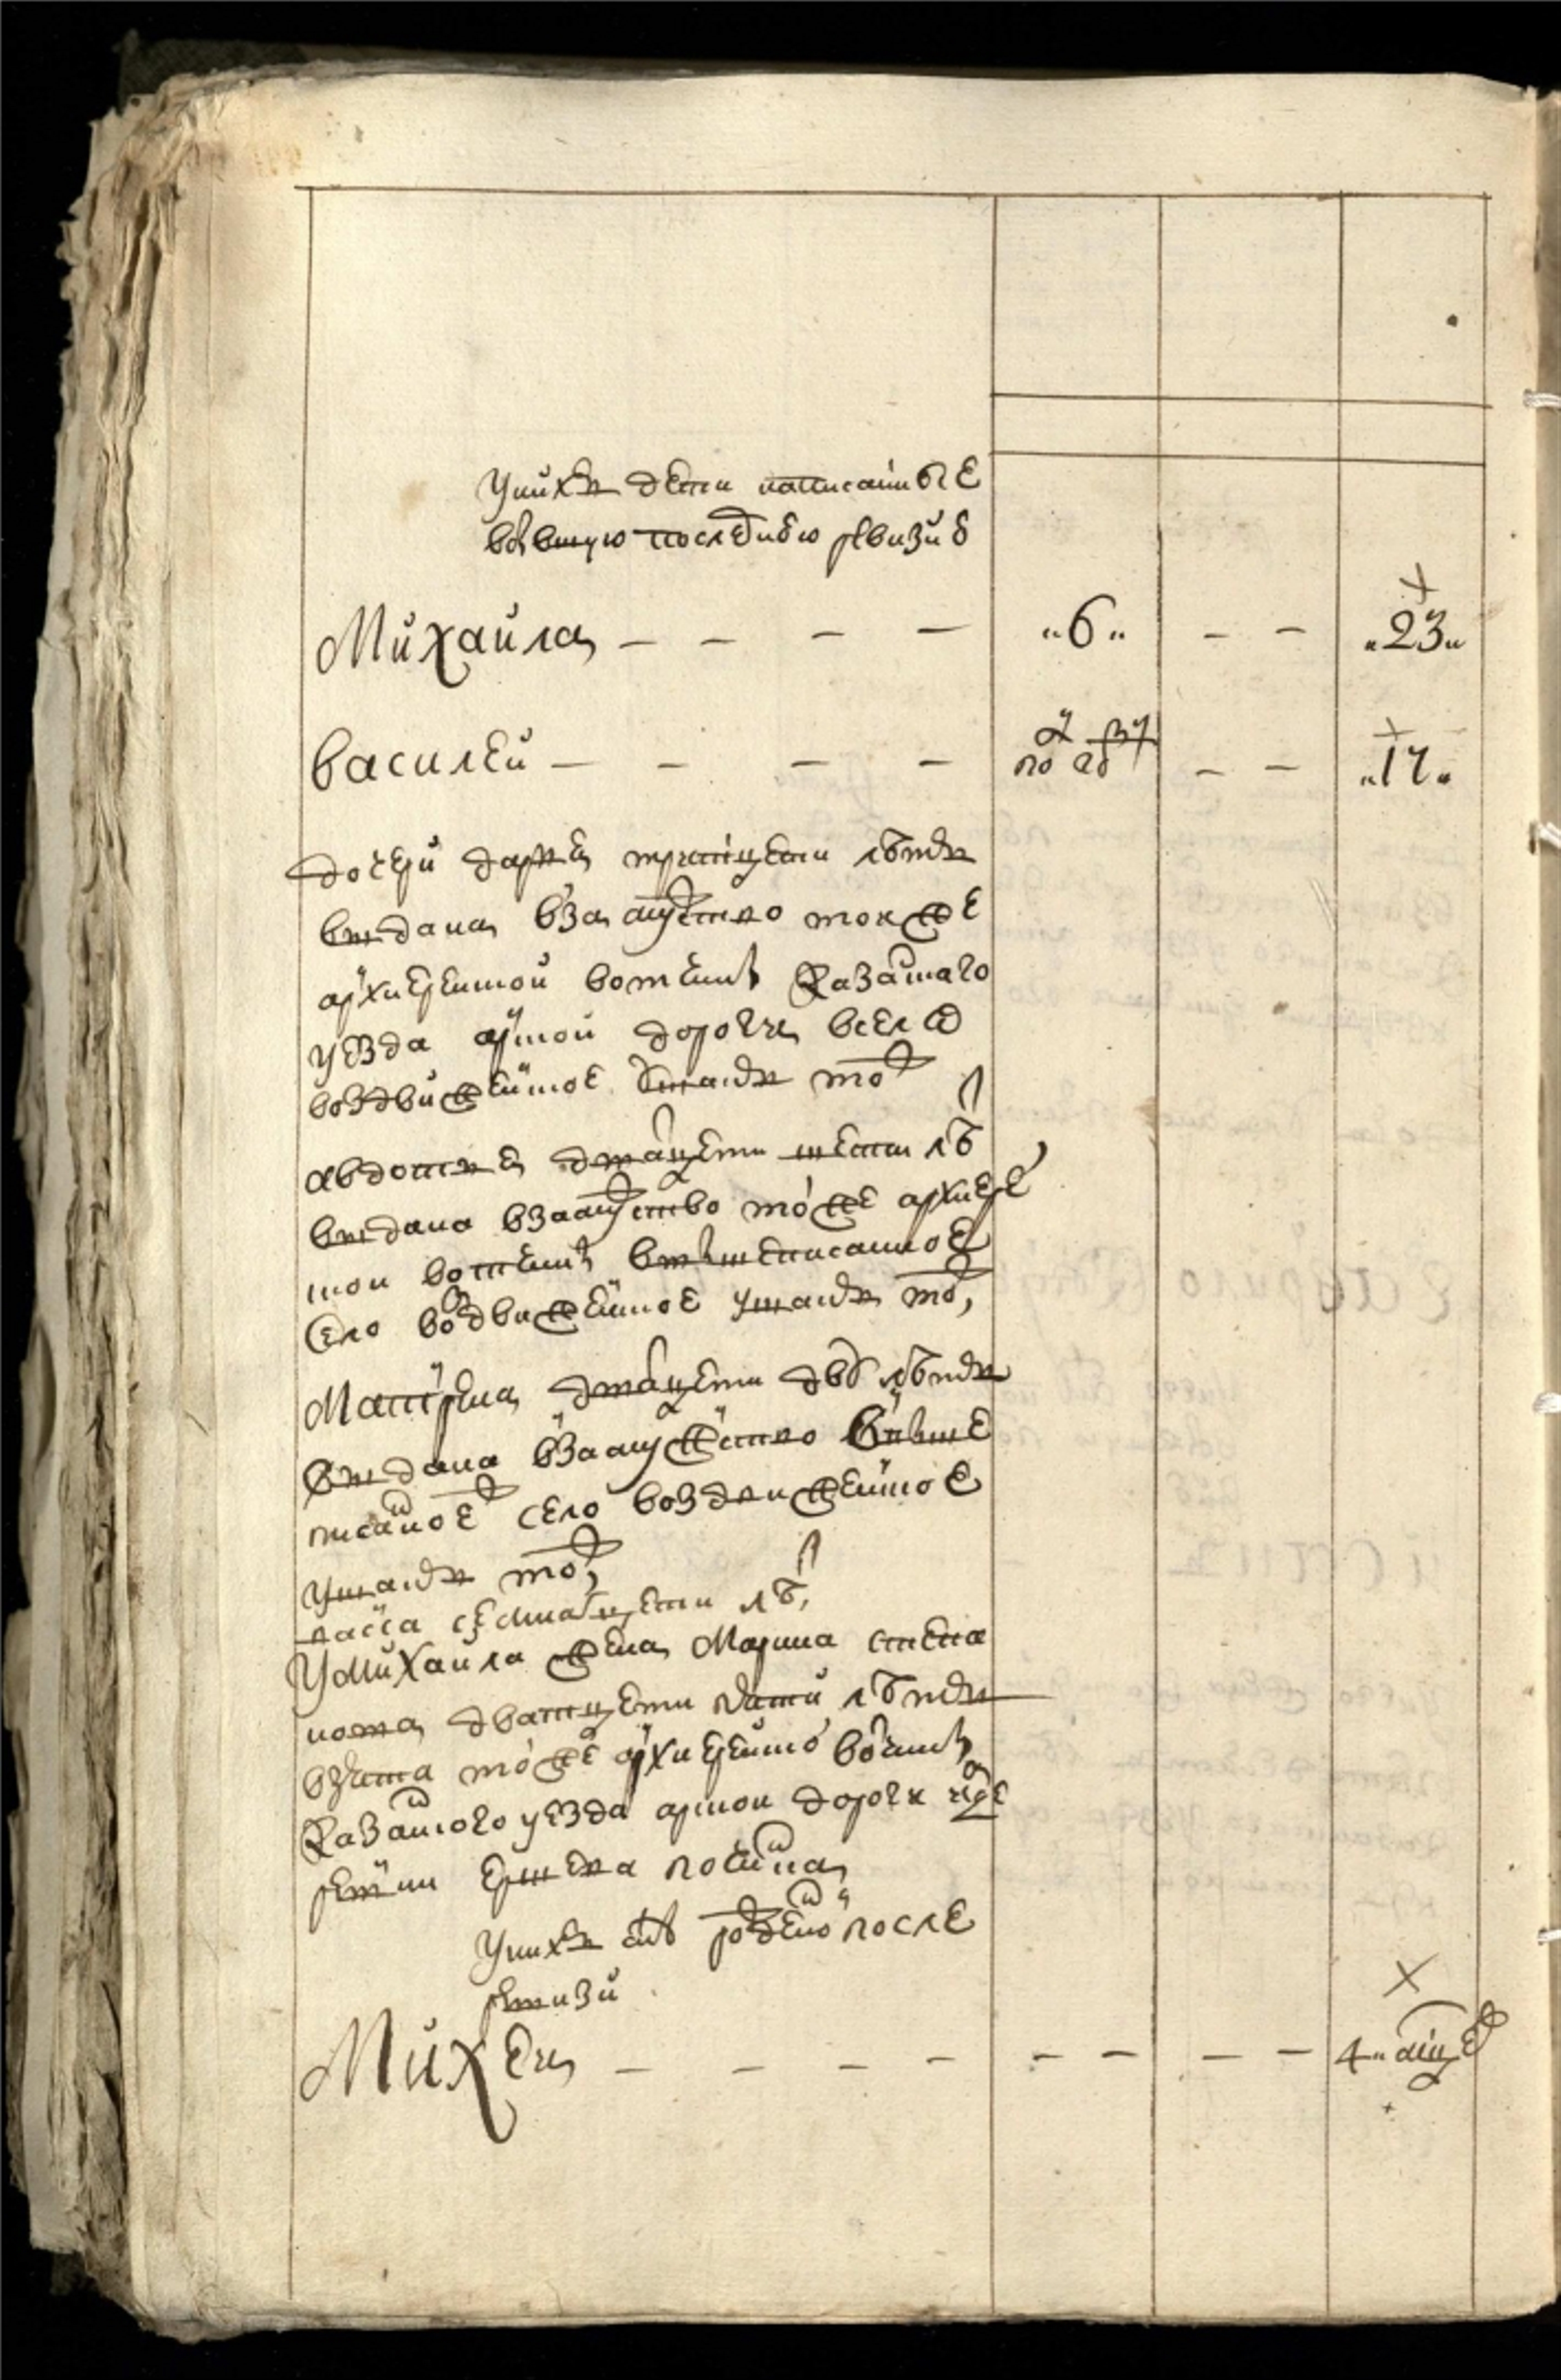 У них дети написанные
в бывшую последнюю ревизию
Михаила — — — — „6„ — — „23„
Василей — — — — по — — „17„
дочери дарья тритцети летъ
выдана взамужство тоя же
архиерейской вотчины Казанского
уезда арской дороги в село
Воздвиженское у них от
авдотья дватцети шести лѣ
выдана взамужство то же архиерей
ской вотчины вышеписанное
село Воздвиженское у них от
Матрена дватцети двѣ лѣтъ
выдана взамужество в выше
писанное село Воздвиженское
у них от
васса семнатцети лѣ
У Михаила жена Марина степа
нова дватцети пяти лѣтъ
взята то же архиерейской вотчины
Казанского уезда арской дороги
починка
У них сынъ рожденой после
ревизи
Михей — — — — — — — — 4